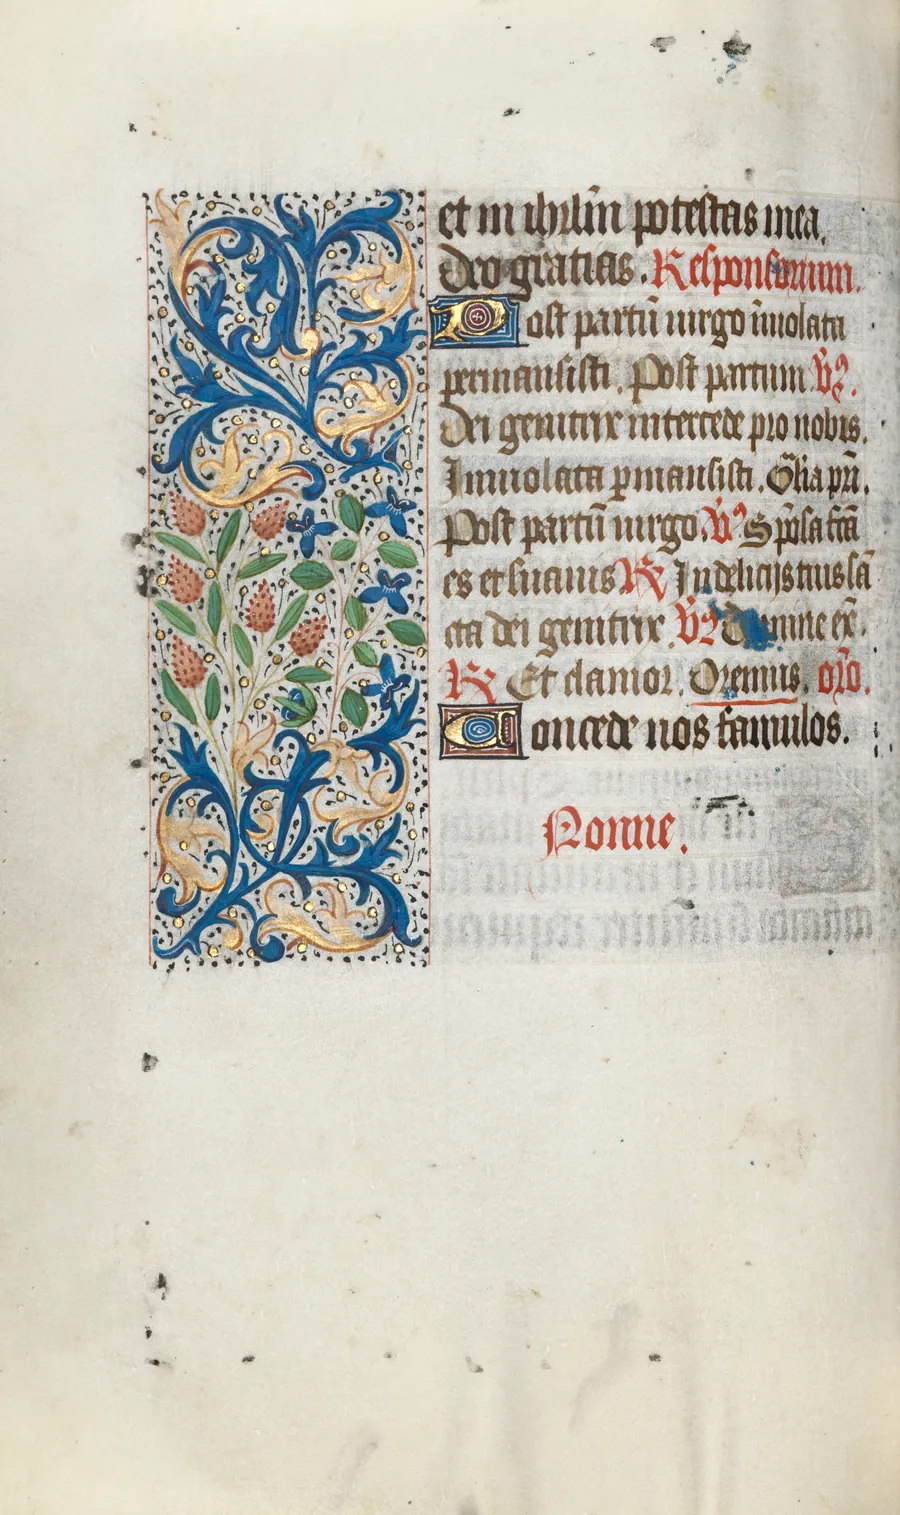 et in ihrlm̄ potestas mea.
Deo gratias. Responsorium.
Post partū uirgo īuiolata
permansisti. Post partum. V̄s.
Dei genitrix intercede pro nobis.
Inuiolata pmansisti. Gl̄ia pr̄i.
Post partū uirgo. V̄s Sp̄osa fc̄ā
es et suauis R̸ In delicijs tuis sā
cta dei genitrix V̄s Domine ex̄.
R̸ Et clamor. Oremus. or̄o.
Concede nos famulos.
Nonne.